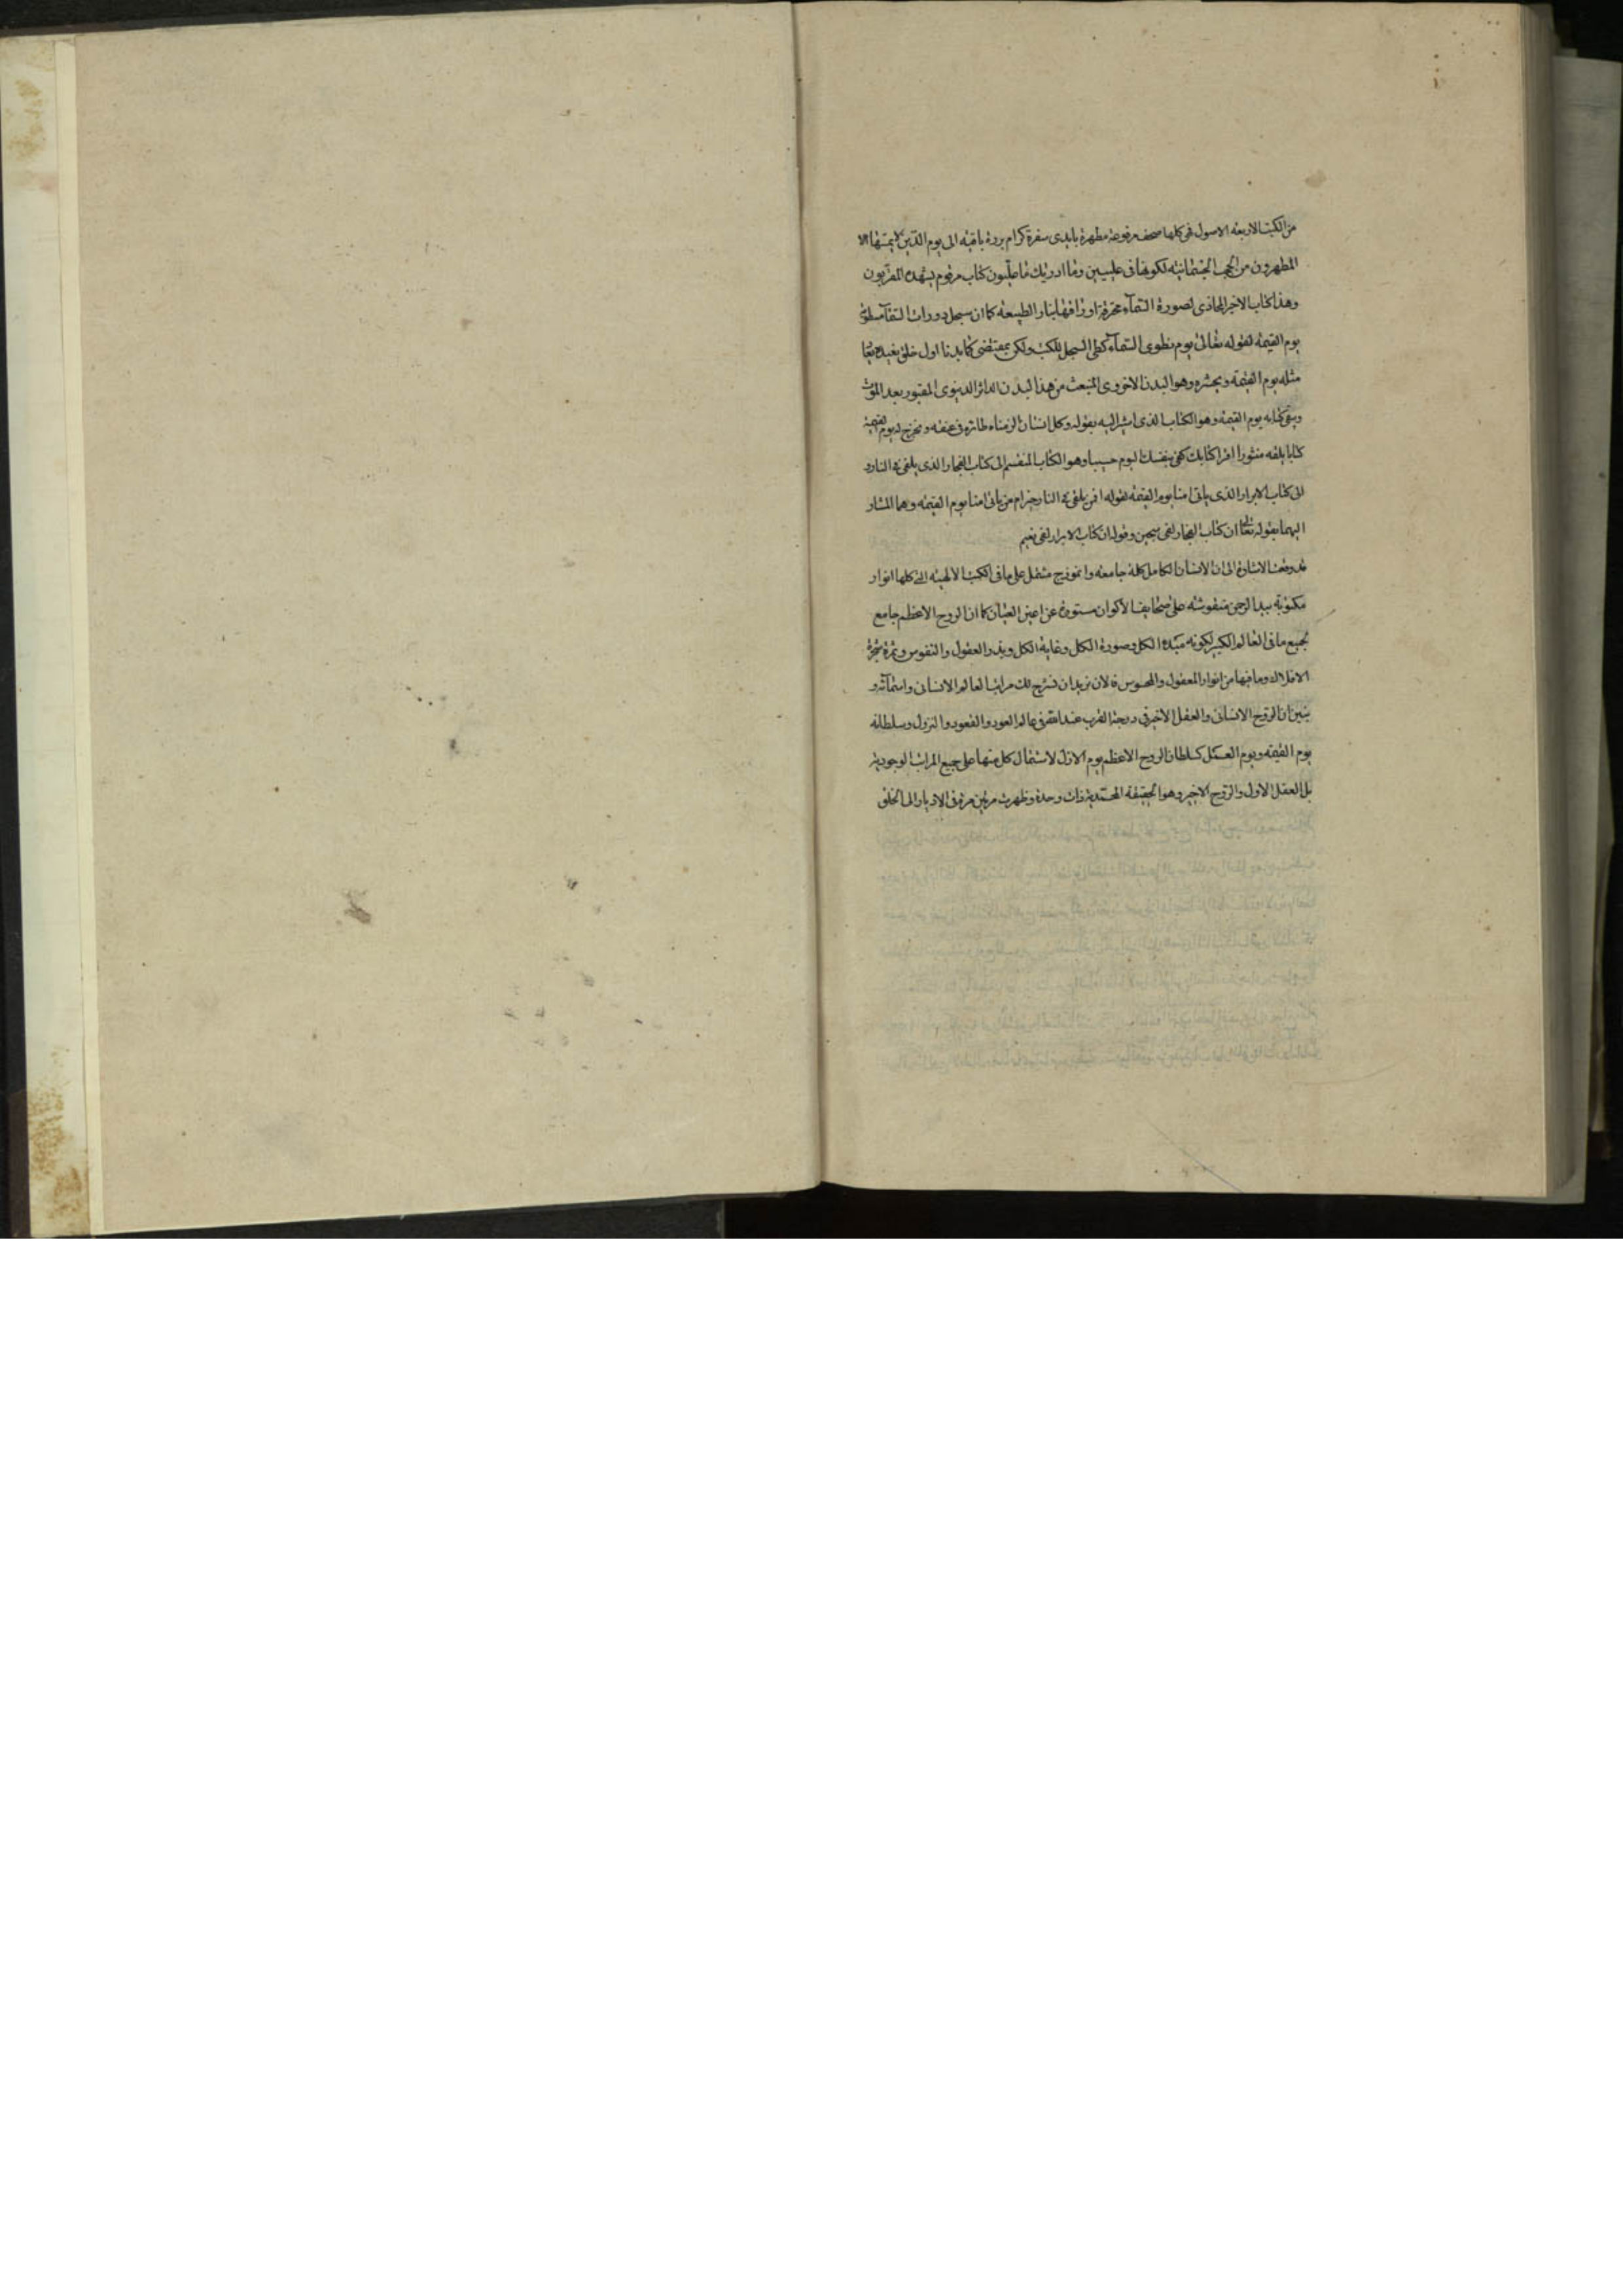 من الكتب الاربعه الاصول فى كلها صحف مرفوعة مطهرة بايدى سفرة كرام بررة باقيه الى يوم الدين لا يمسها الا
المطهرون من الحجب الجسمانيه لكونها فى عليين وما ادريك ما عليون كتاب مرقوم يشهده المقربون
وهذا كتاب الاخير المحاذى لصورة السمآء محترقة اوراقها بنار الطبيعه كما ان سجل دورات السمآ مطوى
يوم القيمه لقوله تعالى يوم نطوى السمآء كطى السجل للكتب ولكن بمقتضى كما بدنا اول خلق نعيده
مثله يوم القيمه ويحشره وهو البدن الاخروى المنبعث من هذا البدن الداثر الدنيوى المقبور بعد الموت
وبقى كتابه يوم القيمه وهو الكتاب الذى اشير اليه بقوله وكل انسان الزمناه طائره فى عنقه ونخرج له يوم القيمة
كتابا يلقه منشورا اقرا كتابك كفى بنفسك اليوم حسيبا وهو الكتاب المنقسم الى كتاب الفجار الذى يلقى فى النار و
الى كتاب الابرار الذى ياتى امنا يوم القيمه لقوله افمن يلقى فى النار خير ام من ياتى امنا يوم القيمه وهما المشار
اليهما بقوله تعالى ان كتاب الفجار لفى سجين وقوله ان كتاب الابرار لفى نعيم
قد وقعت الاشارة الى ان الانسان الكامل كلمة جامعه وانموذج مشتمل على ما فى الكتب الالهيه التى كلها انوار
مكتوبة بيد الرحمن منقوشه على صحايف الاكوان مستورة عن اعين العميان كما ان الروح الاعظم جامع
لجميع ما فى العالم الكبير لكونه مبدء الكل وصورة الكل وغاية الكل وبذر العقول والنفوس وثمرة شجرة
الافلاك وما فيها من انوار المعقول والمحسوس فالان نريد ان نشرح لك مراتب العالم الانسانى واسمآئه و
نبين ان الروح الانسانى والعقل الاخير فى درجة القرب عند الله فى عالم العود والصعود والنزول وسلطانه
يوم القيمه ويوم العمل كسلطان الروح الاعظم يوم الازل لاشتمال كل منهما على جميع المراتب الوجوديه
بل العقل الاول والروح الاخير وهو الحقيقه المحمديه ذات وحدة وظهرت مرتين مرة فى الادبار الى الخلق